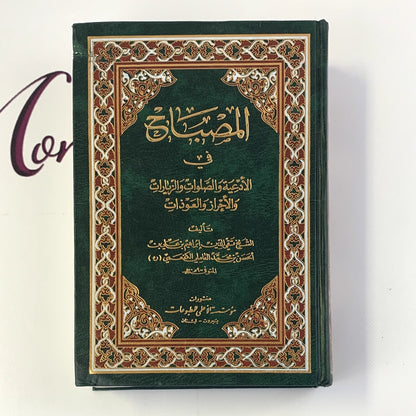 Con
المصباح
في
الأدعية والصلوات والزيارات
والأحراز والعوذات
تأليف
الشيخ تقي الدين إبراهيم بن علي بن
الحسن بن محمد العاملي الكفعمي (ره)
منشورات
مؤسسة الأعلمي للمطبوعات
بيروت - لبنان